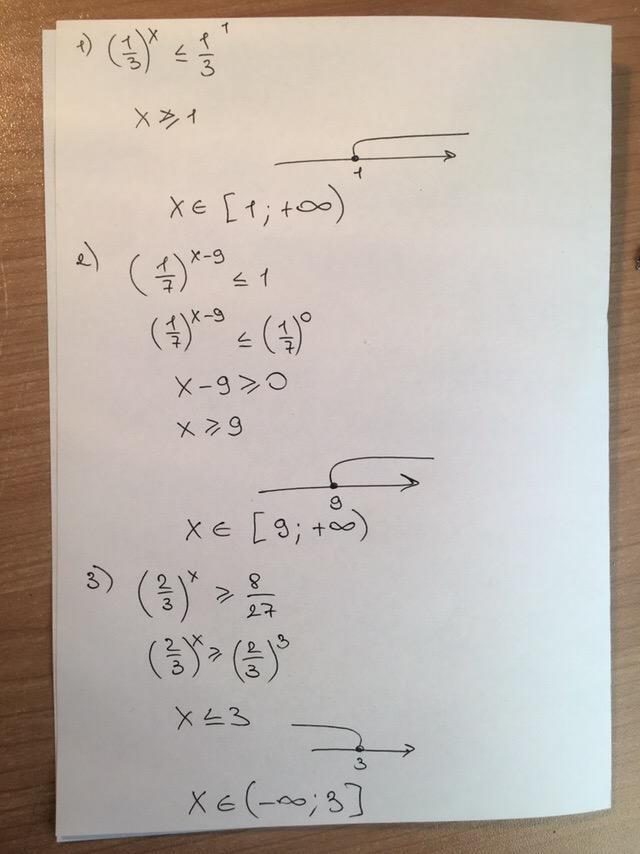 1) (1/3)^x ≤ 1/3^1
x ≥ 1
1
x ∈ [1; +∞)
2) (1/7)^(x-9) ≤ 1
(1/7)^(x-9) ≤ (1/7)^0
x - 9 ≥ 0
x ≥ 9
9
x ∈ [9; +∞)
3) (2/3)^x ≥ 8/27
(2/3)^x ≥ (2/3)^3
x ≤ 3
3
x ∈ (-∞; 3]